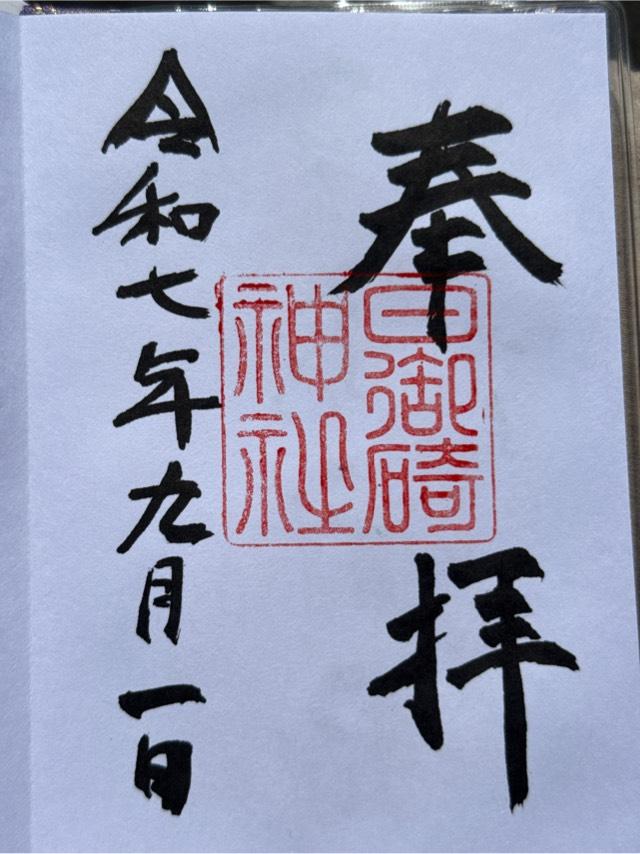 奉拝
日御碕
神社
令和七年九月一日